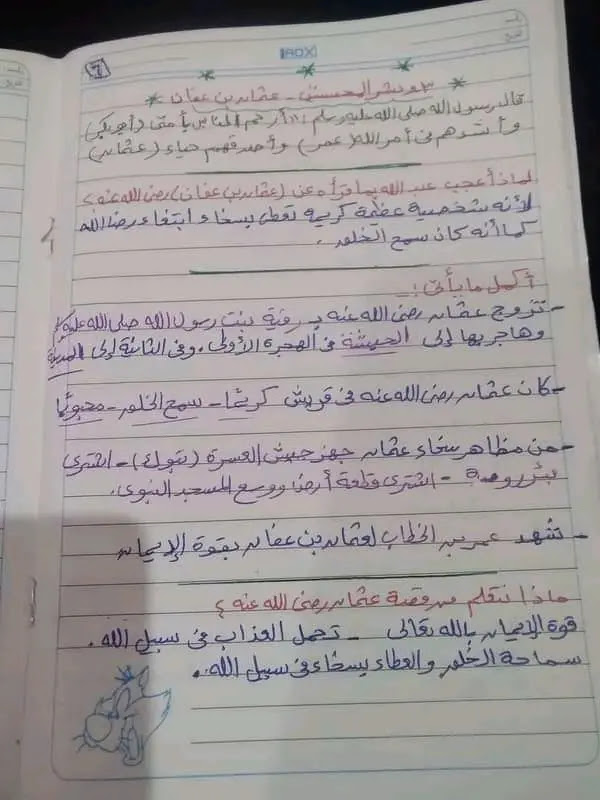 ROX
7
* ٣- وبشر المحسنين - عثمان بن عفان *
قال رسول الله صلى الله عليه وسلم: "أرحم الناس بأمتى (أبو بكر)
وأشدهم فى أمر الله (عمر) وأصدقهم حياء (عثمان)
لماذا أعجب عبد الله بما قرأه عن (عثمان بن عفان) رضى الله عنه؟
لأنه شخصية عظيمة كريمة تعطى بسخاء ابتغاء رضا الله
كما أنه كان سمح الخلق.
أكمل ما يأتى:
- تزوج عثمان رضى الله عنه بـ رقية بنت رسول الله صلى الله عليه وسلم
وهاجر بها إلى الحبشة فى الهجرة الأولى، وفى الثانية إلى المدينة
- كان عثمان رضى الله عنه فى قريش كريمًا - سمح الخلق - محبوبًا
- من مظاهر سخاء عثمان جهز جيش العسرة (تبوك) - اشترى
بئر رومة - اشترى قطعة أرض ووسع المسجد النبوى.
- شهد عمر بن الخطاب لعثمان بن عفان بقوة الإيمان
ماذا نتعلم من قصة عثمان رضى الله عنه؟
قوة الإيمان بالله تعالى - تحمل العذاب فى سبيل الله.
سماحة الخُلق والعطاء بسخاء فى سبيل الله.